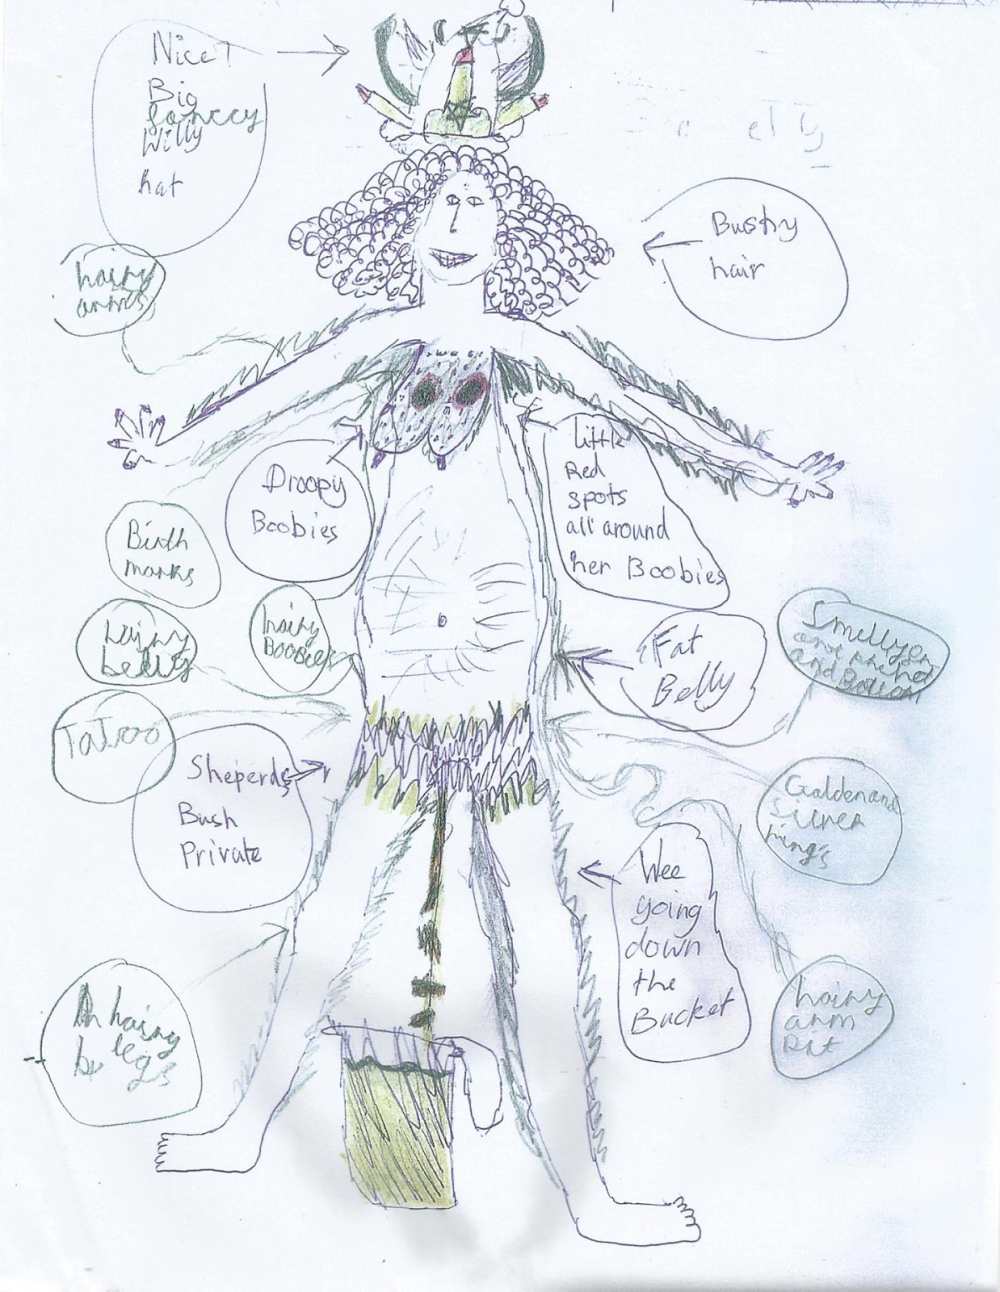 Nice
Big
Willy
hat
Bushy
hair
hairy
arms
Droopy
Boobies
Little
Red
spots
all around
her Boobies
Birth
marks
hairy
belly
hairy
Boobies
Fat
Belly
Tatoo
Sheperds
Bush
Private
Golden and
silver
rings
Wee
going
down
the
Bucket
hairy
legs
hairy
arm
Pit